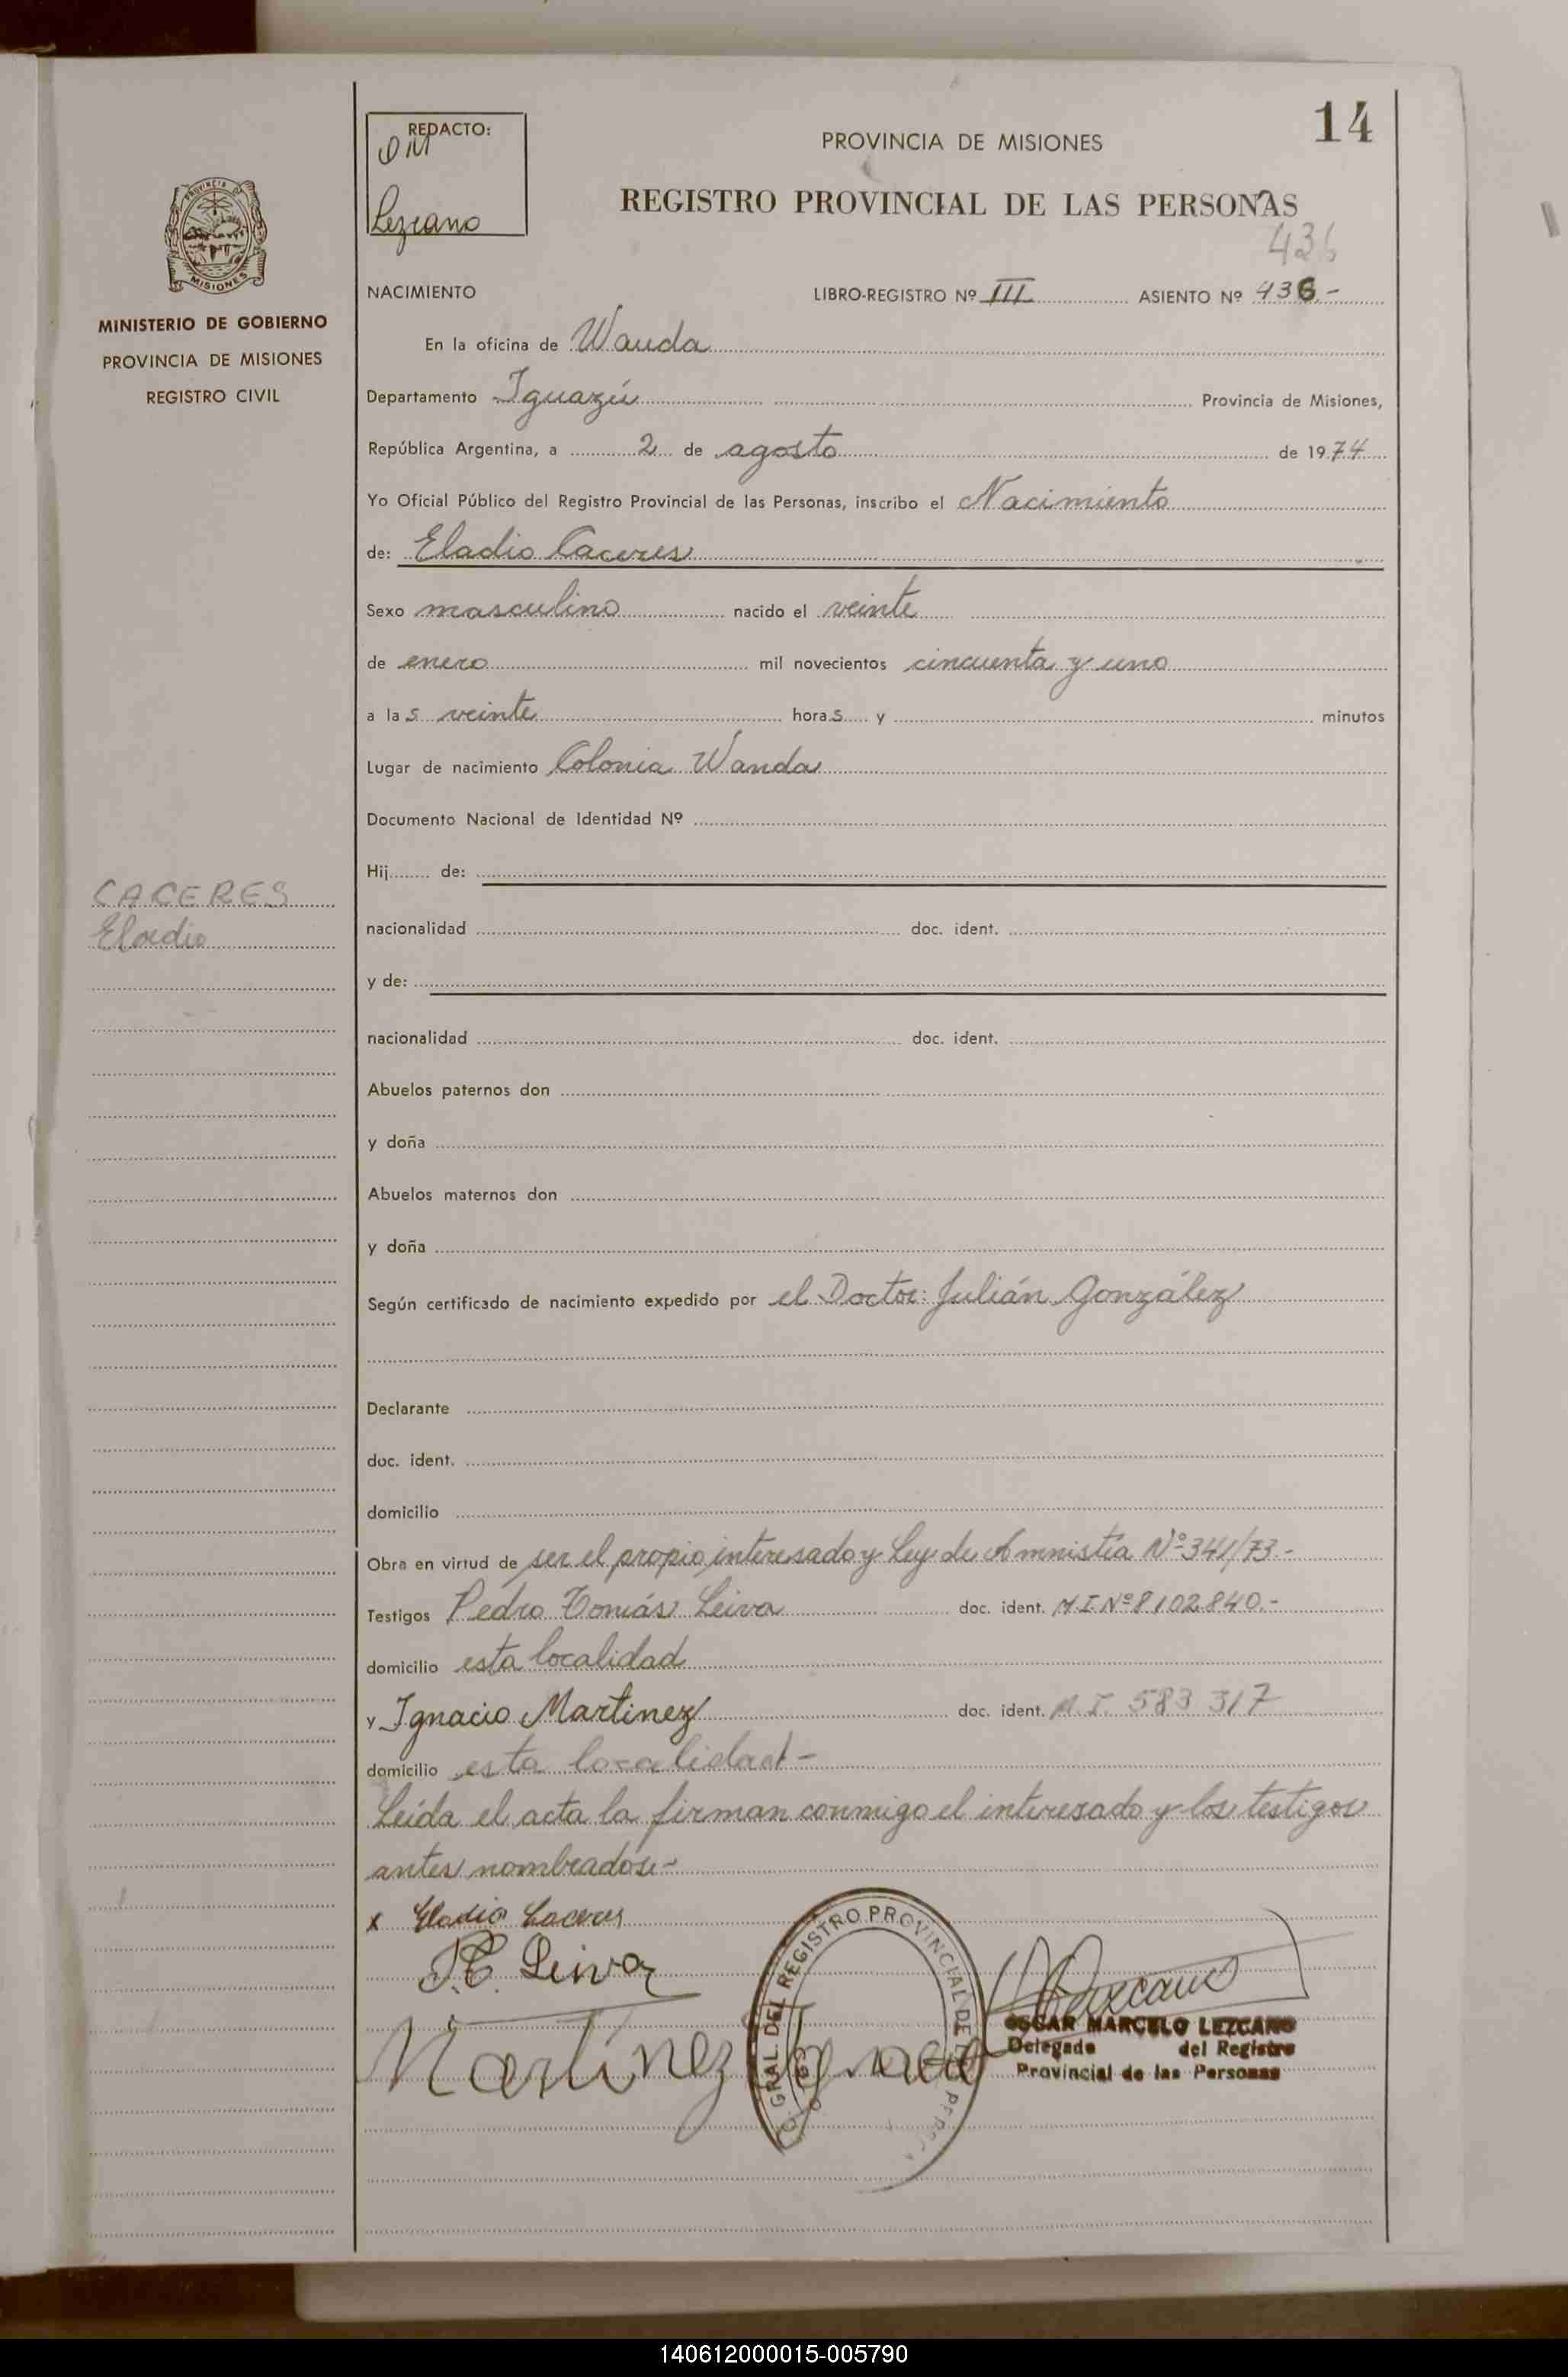 14
REDACTO:
OM
Lezcano
PROVINCIA DE MISIONES
REGISTRO PROVINCIAL DE LAS PERSONAS
436
PROVINCIA DE
MISIONES
MINISTERIO DE GOBIERNO
PROVINCIA DE MISIONES
REGISTRO CIVIL
NACIMIENTO LIBRO-REGISTRO Nº III ASIENTO Nº 436.-
En la oficina de Wanda
Departamento Iguazú Provincia de Misiones,
República Argentina, a 2 de agosto de 1974
Yo Oficial Público del Registro Provincial de las Personas, inscribo el Nacimiento
de: Eladio Caceres
Sexo masculino nacido el veinte
de enero mil novecientos cincuenta y uno
a las veinte horas y minutos
Lugar de nacimiento Colonia Wanda
Documento Nacional de Identidad Nº
Hij de:
CACERES
Eladio
nacionalidad doc. ident.
y de:
nacionalidad doc. ident.
Abuelos paternos don
y doña
Abuelos maternos don
y doña
Según certificado de nacimiento expedido por el Doctor: Julián González
Declarante
doc. ident.
domicilio
Obra en virtud de ser el propio interesado y Ley de Amnistía Nº 341/73.-
Testigos Pedro Tomás Leiva doc. ident. M.I.Nº 8102840.-
domicilio esta localidad
y Ignacio Martinez doc. ident. M.I. 583 317
domicilio esta localidad-
Leída el acta la firman conmigo el interesado y los testigos
antes nombrados.-
x Eladio Caceres
P.T. Leiva
Martínez Ignacio
GRAL DEL REGISTRO PROVINCIAL DE
Lezcano
OSCAR MARCELO LEZCANO
Delegado del Registro
Provincial de las Personas
140612000015-005790